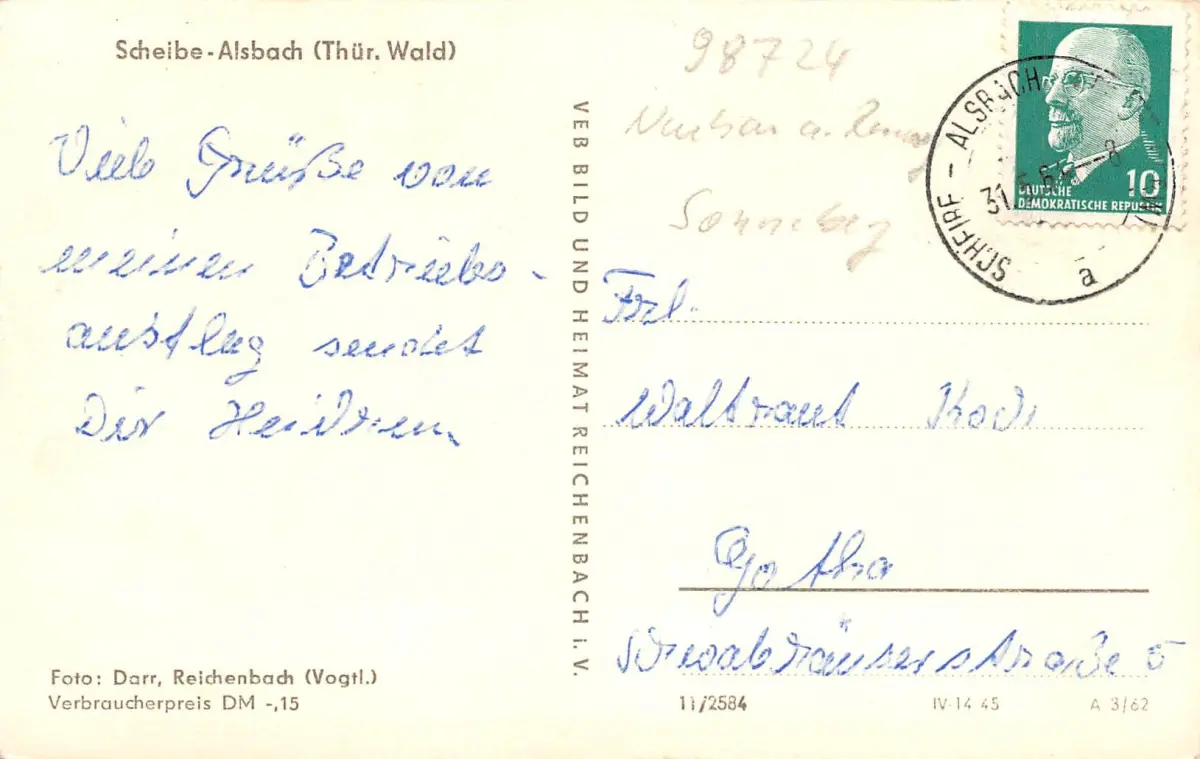 Scheibe-Alsbach (Thür. Wald)
Viele Grüße von
meinen Betriebs-
ausflug sendet
Dir Heidrun
Foto: Darr, Reichenbach (Vogtl.)
Verbraucherpreis DM -,15
VEB BILD UND HEIMAT REICHENBACH i. V.
98724
Neuhaus a. Rennwg
Sonneberg
DEUTSCHE
DEMOKRATISCHE REPUBLIK
10
SCHEIBE - ALSBACH
31.5.
-8
a
Frl.
Waltraut Koch
Gotha
straße 5
11/2584
IV-14 45
A 3/62